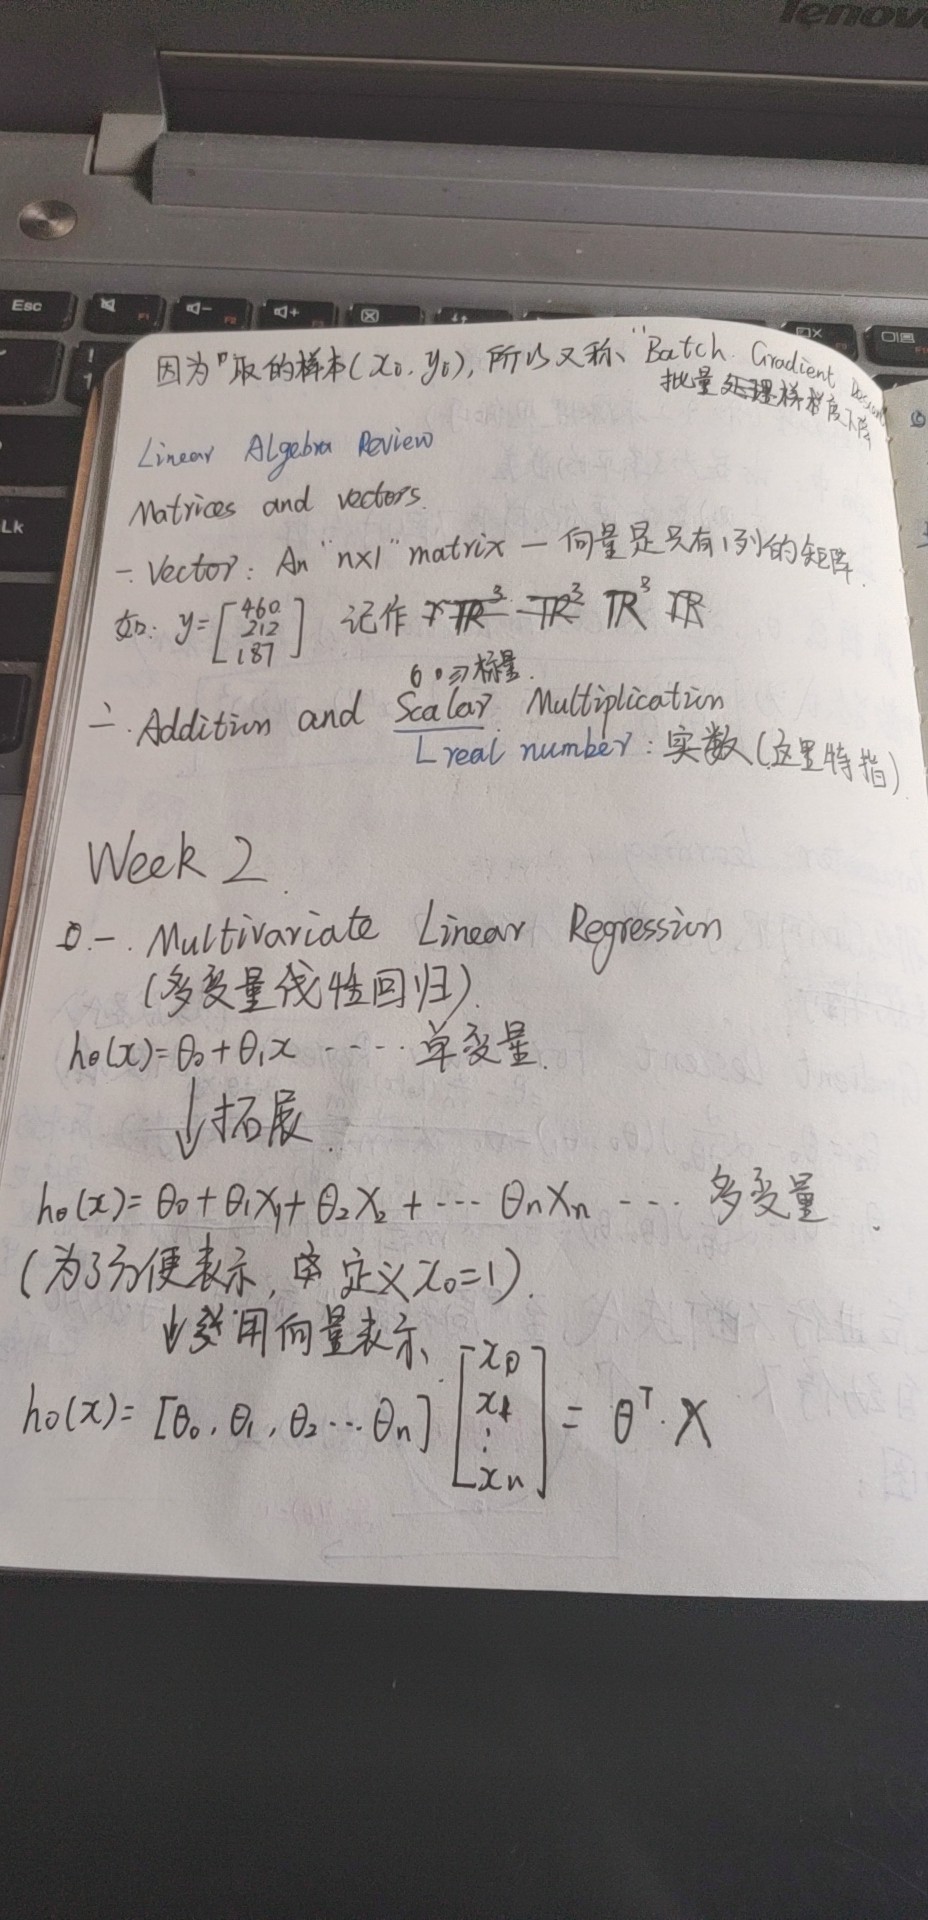 lenovo
Esc F1 F2 F3
Lk
因为取的样本(x₀, y₀), 所以又称 "Batch Gradient
批量处理梯度下降
Linear Algebra Review
Matrices and vectors.
一. Vector: An "n×1" matrix — 向量是只有1列的矩阵.
如: y=[460 212 187] 记作 ℝ³ ℝ³ ℝ³ ℝ
标量.
二. Addition and Scalar Multiplication
real number: 实数(这里特指)
Week 2.
一. Multivariate Linear Regression
(多变量线性回归).
hθ(x)=θ₀+θ₁x ···· 单变量.
↓拓展
hθ(x)=θ₀+θ₁X₁+θ₂X₂+···θnXn ···· 多变量.
(为了方便表示, 定义x₀=1).
↓用向量表示
hθ(x)=[θ₀, θ₁, θ₂···θn] [x₀ x₁ ⋮ xn] = θᵀ·X